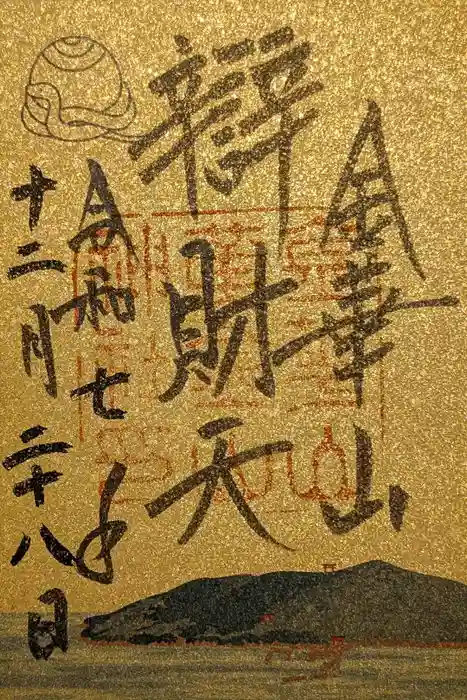 金華山
辯財天
令和七年
十二月二十八日